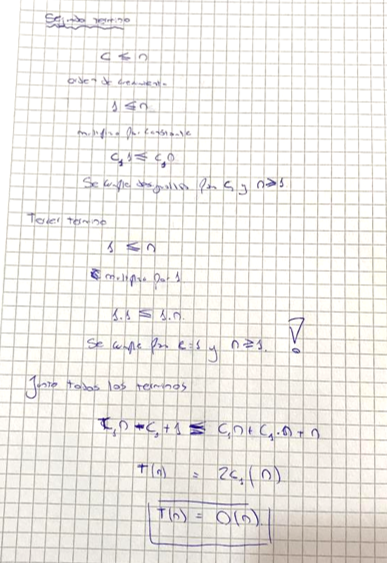 Segundo termino
C ≤ n
orden de crecimiento
1 ≤ n
multiplico por constante
C₁1 ≤ C₁n
Se cumple para C₁ y n≥1
Tercer termino
1 ≤ n
multiplico por 1
1.1 ≤ 1.n.
Se cumple por c=1 y n≥1.
Junto todos los terminos
C₁n + C₁ + 1 ≤ C₁n + C₁.n + n
T(n) = 2C₁(n)
T(n) = O(n)